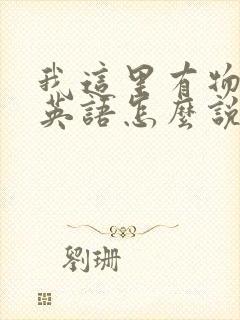 我這里有物
英語怎麼說
劉珊